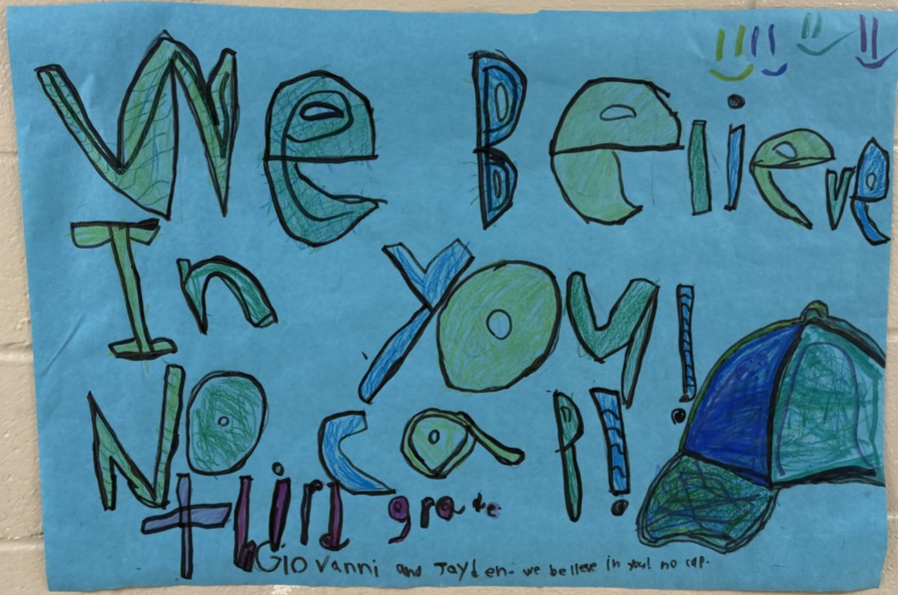 We Believe
In you!
No cap!
third grade
GIOvanni and Jayden- we believe in you! no cap.